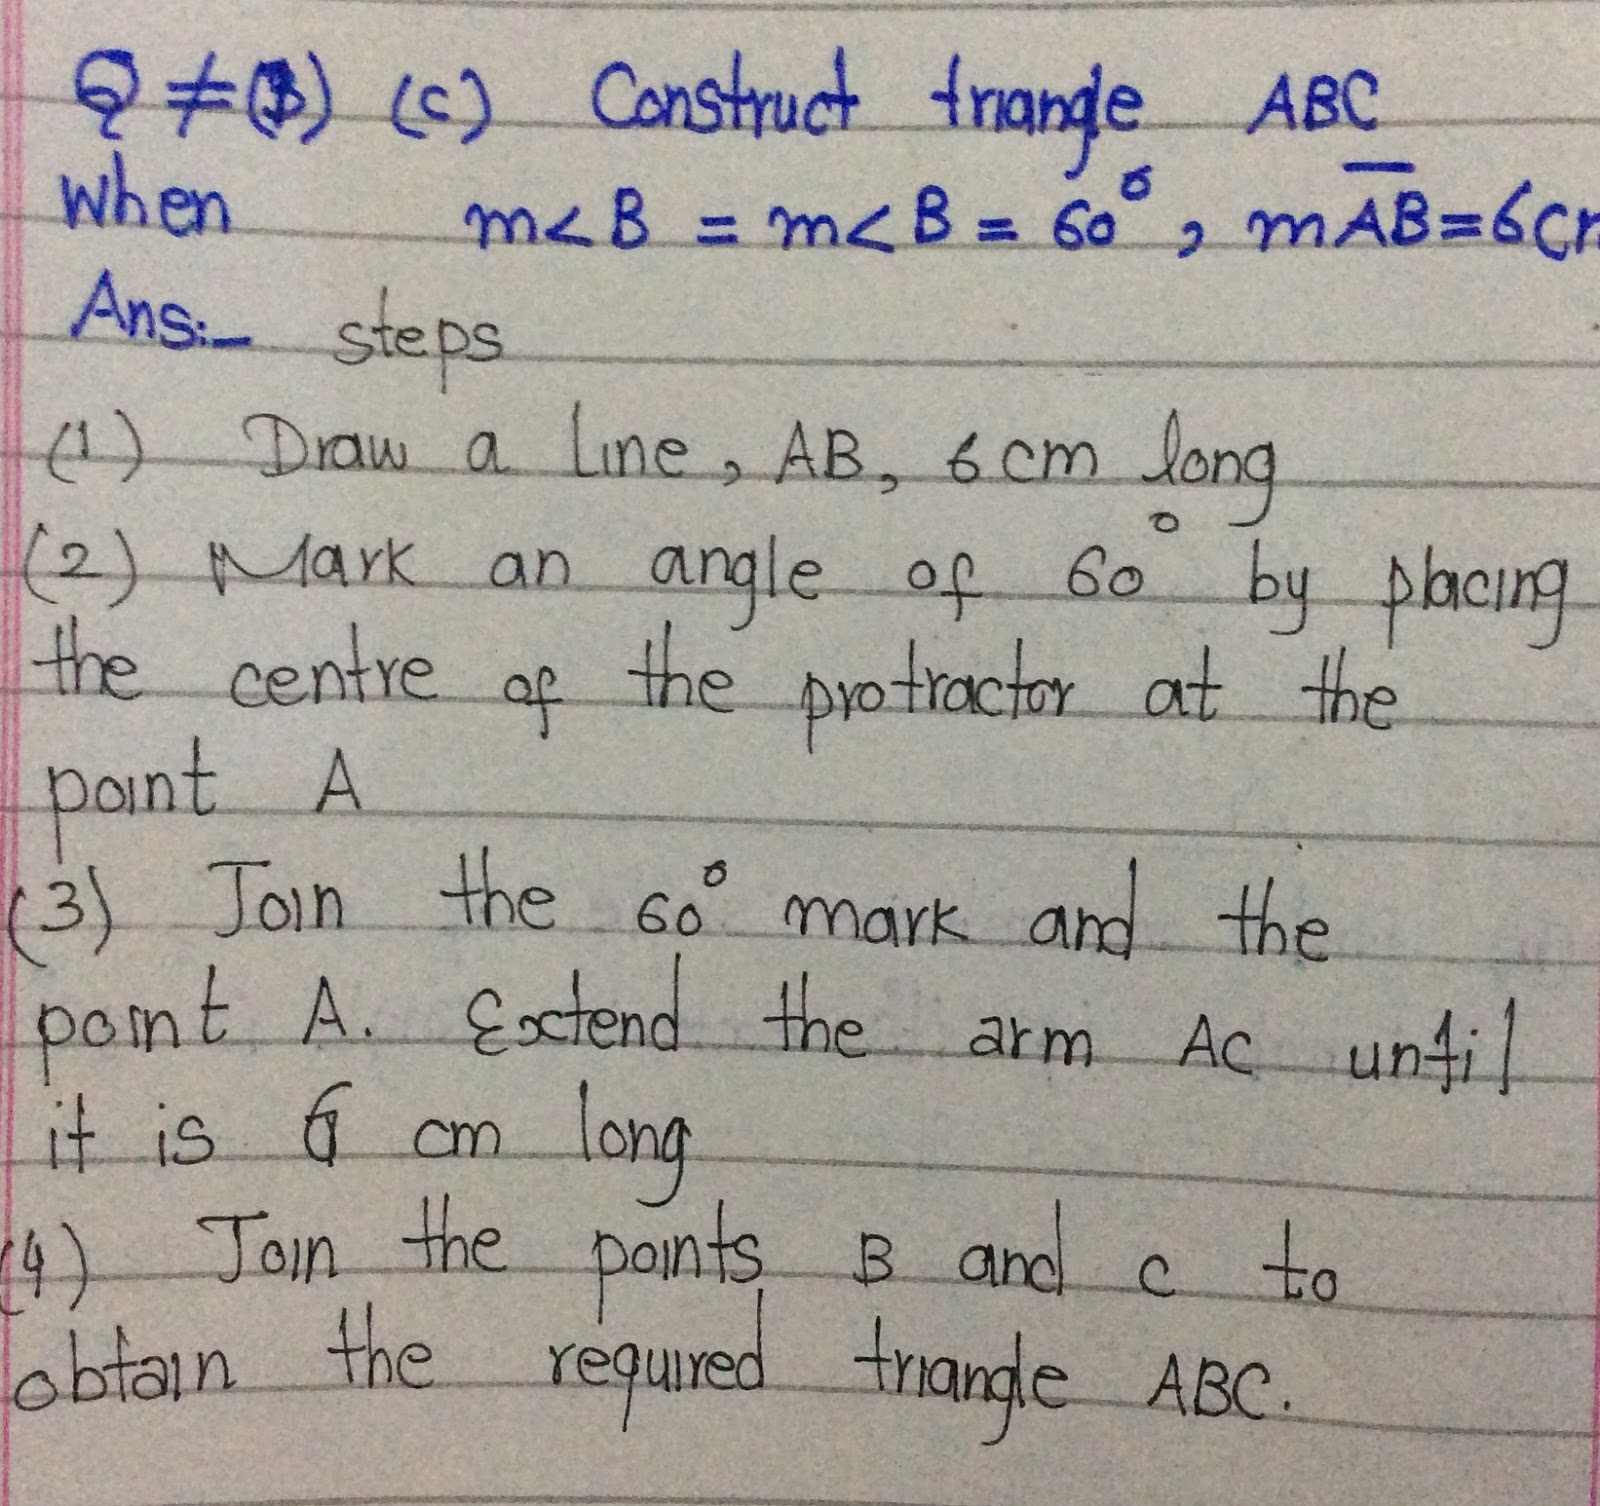 Q ≠ (3) (c) Construct triangle ABC
when m<B = m<B = 60°, mAB=6cm
Ans:- steps
(1) Draw a line, AB, 6cm long
(2) Mark an angle of 60° by placing
the centre of the protractor at the
point A
(3) Join the 60° mark and the
point A. Extend the arm AC until
it is 6 cm long
(4) Join the points B and C to
obtain the required triangle ABC.